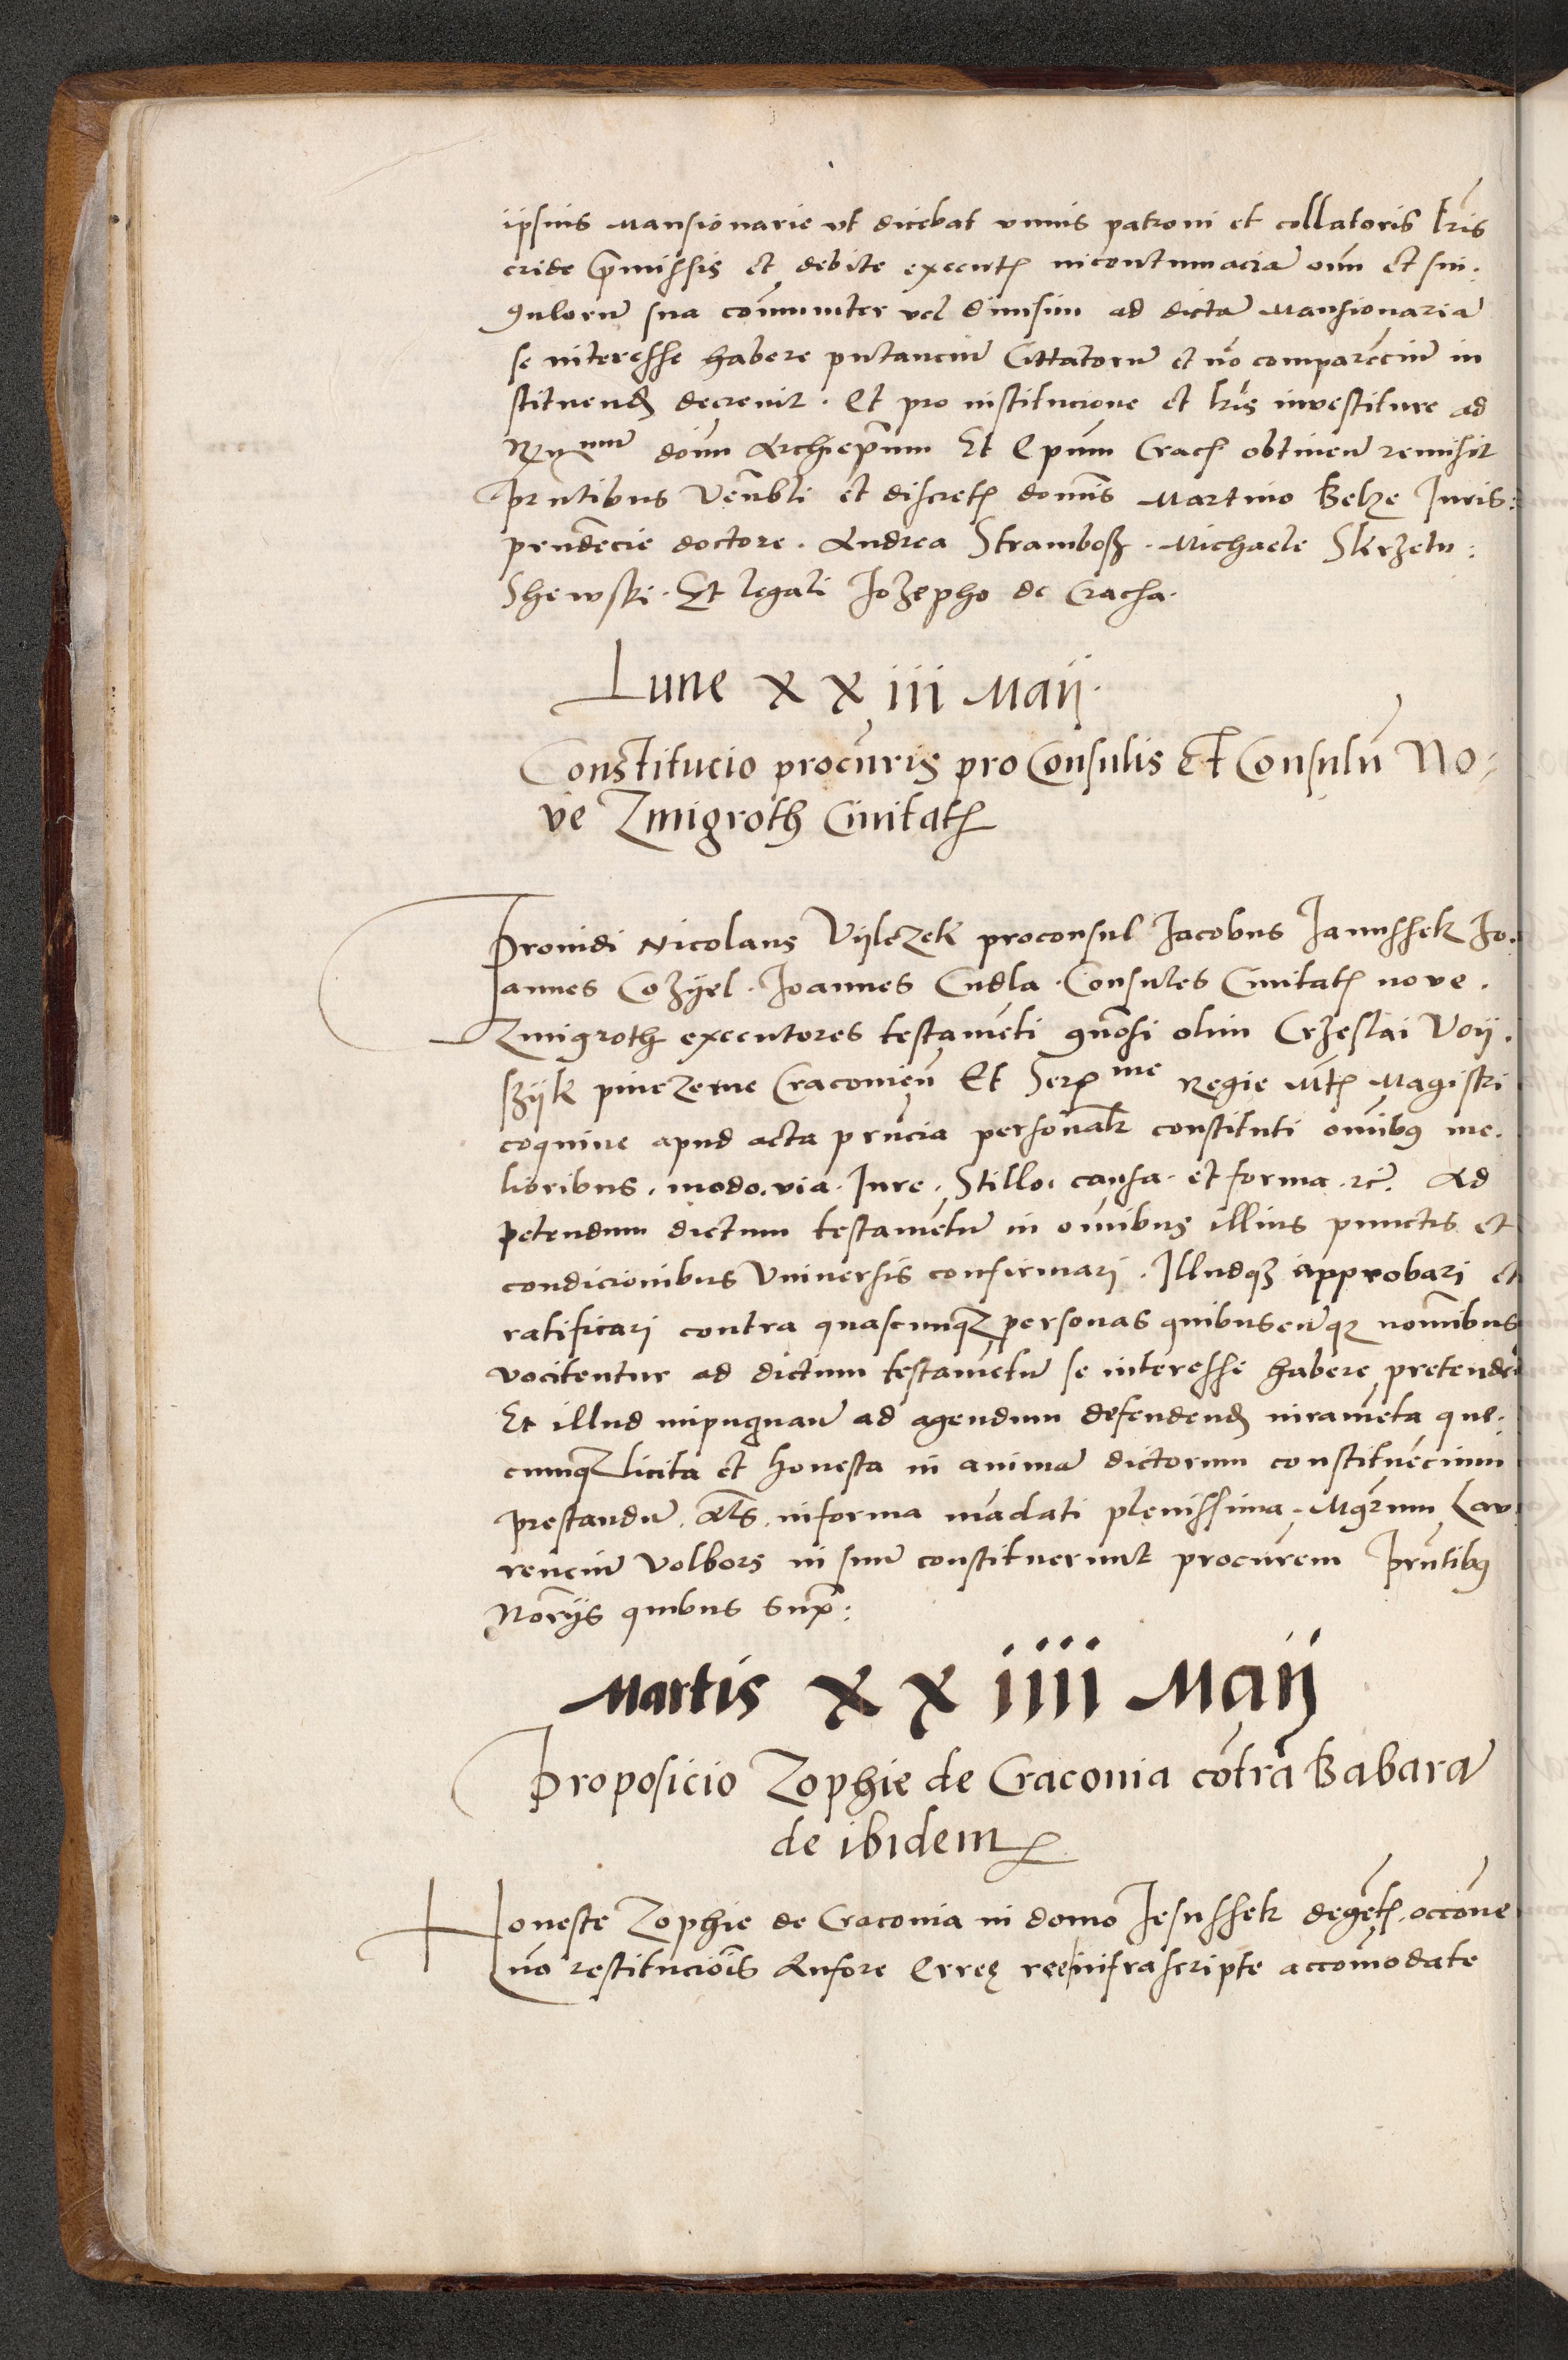 ipsius Mansionarie ut dicebat unius patroni et collatoris lr̃is
cride p̃missis et debite executꝭ in contumaciã oim̃ et sin.
gulorũ sua com̃uniter vel diuisim ad dictã Mansionariã
se interesse habere putanciũ Cittatorũ et nõ comparẽciũ in
stituendꝭ decreuit. Et pro institucione et lr̃is inuestiture ad
Rꝫmum dõnm Archiep̃um Et Ep̃um Cracꝭ obtinen̄ remisit
Pr̃ntibus Ven̄abli et discretꝭ domĩs Martino Belze Juris:
prudẽcie doctore. Andrea Stramboß. Michaele Skrzetu:
Shewski. Et legali Jozepho de Cracha.
Lune xxiii Maij.
Constitucio procũris proConsulis Et Consulũ No=
ve Zmigroth Ciuitatꝭ
Prouidi Nicolaus Vylczek proconsul Jacobus Janusshek Jo.
annes Cozyel. Joannes Cudla. Consules Ciuitatꝭ nove.
Zmigroth executores testamẽti gñosi olim Crzeslai Voij.
szijk pincerne Craconien̄ Et Serꝭme Regie Mtꝭ Magistri
coquine apud acta pr̃ncia personalꝛ constituti omĩbꝯ me.
lioribus. modo. via. Jure. Stillo. causa. et forma. ꝛc̃. Ad
petendum dictum testamẽtũ in omĩbus illius punctis et
condicionibus Vniuersis confirmari. Illudqꝫ approbari et
ratificari contra quascumqꝫ personas quibuscũqꝫ nomĩbus
vocitentur ad dictum testamẽtũ se interesse habere pretendẽ
Et illud impugnan̄ ad agendum defendendꝭ iuramẽta que.
cumqꝫ licita et honesta in animã dictorum constituẽcium
prestandũ. Als̃. in forma mãdati plenissima. Mgr̃um Lau
renciũ Volbors in suũ constituerunt procũrem Pr̃ntibꝯ
Nor̃ijs quibus supꝭ:
Martis xxiiii Maij
Proposicio Zophie de Craconia cõtra Babarã
de ibidem
Honeste Zophie de Craconia in domo Jesusshek degẽtꝭ. occõne
nõ restituciõis Aufore Erreꝭ ree infrascripte accomõdate